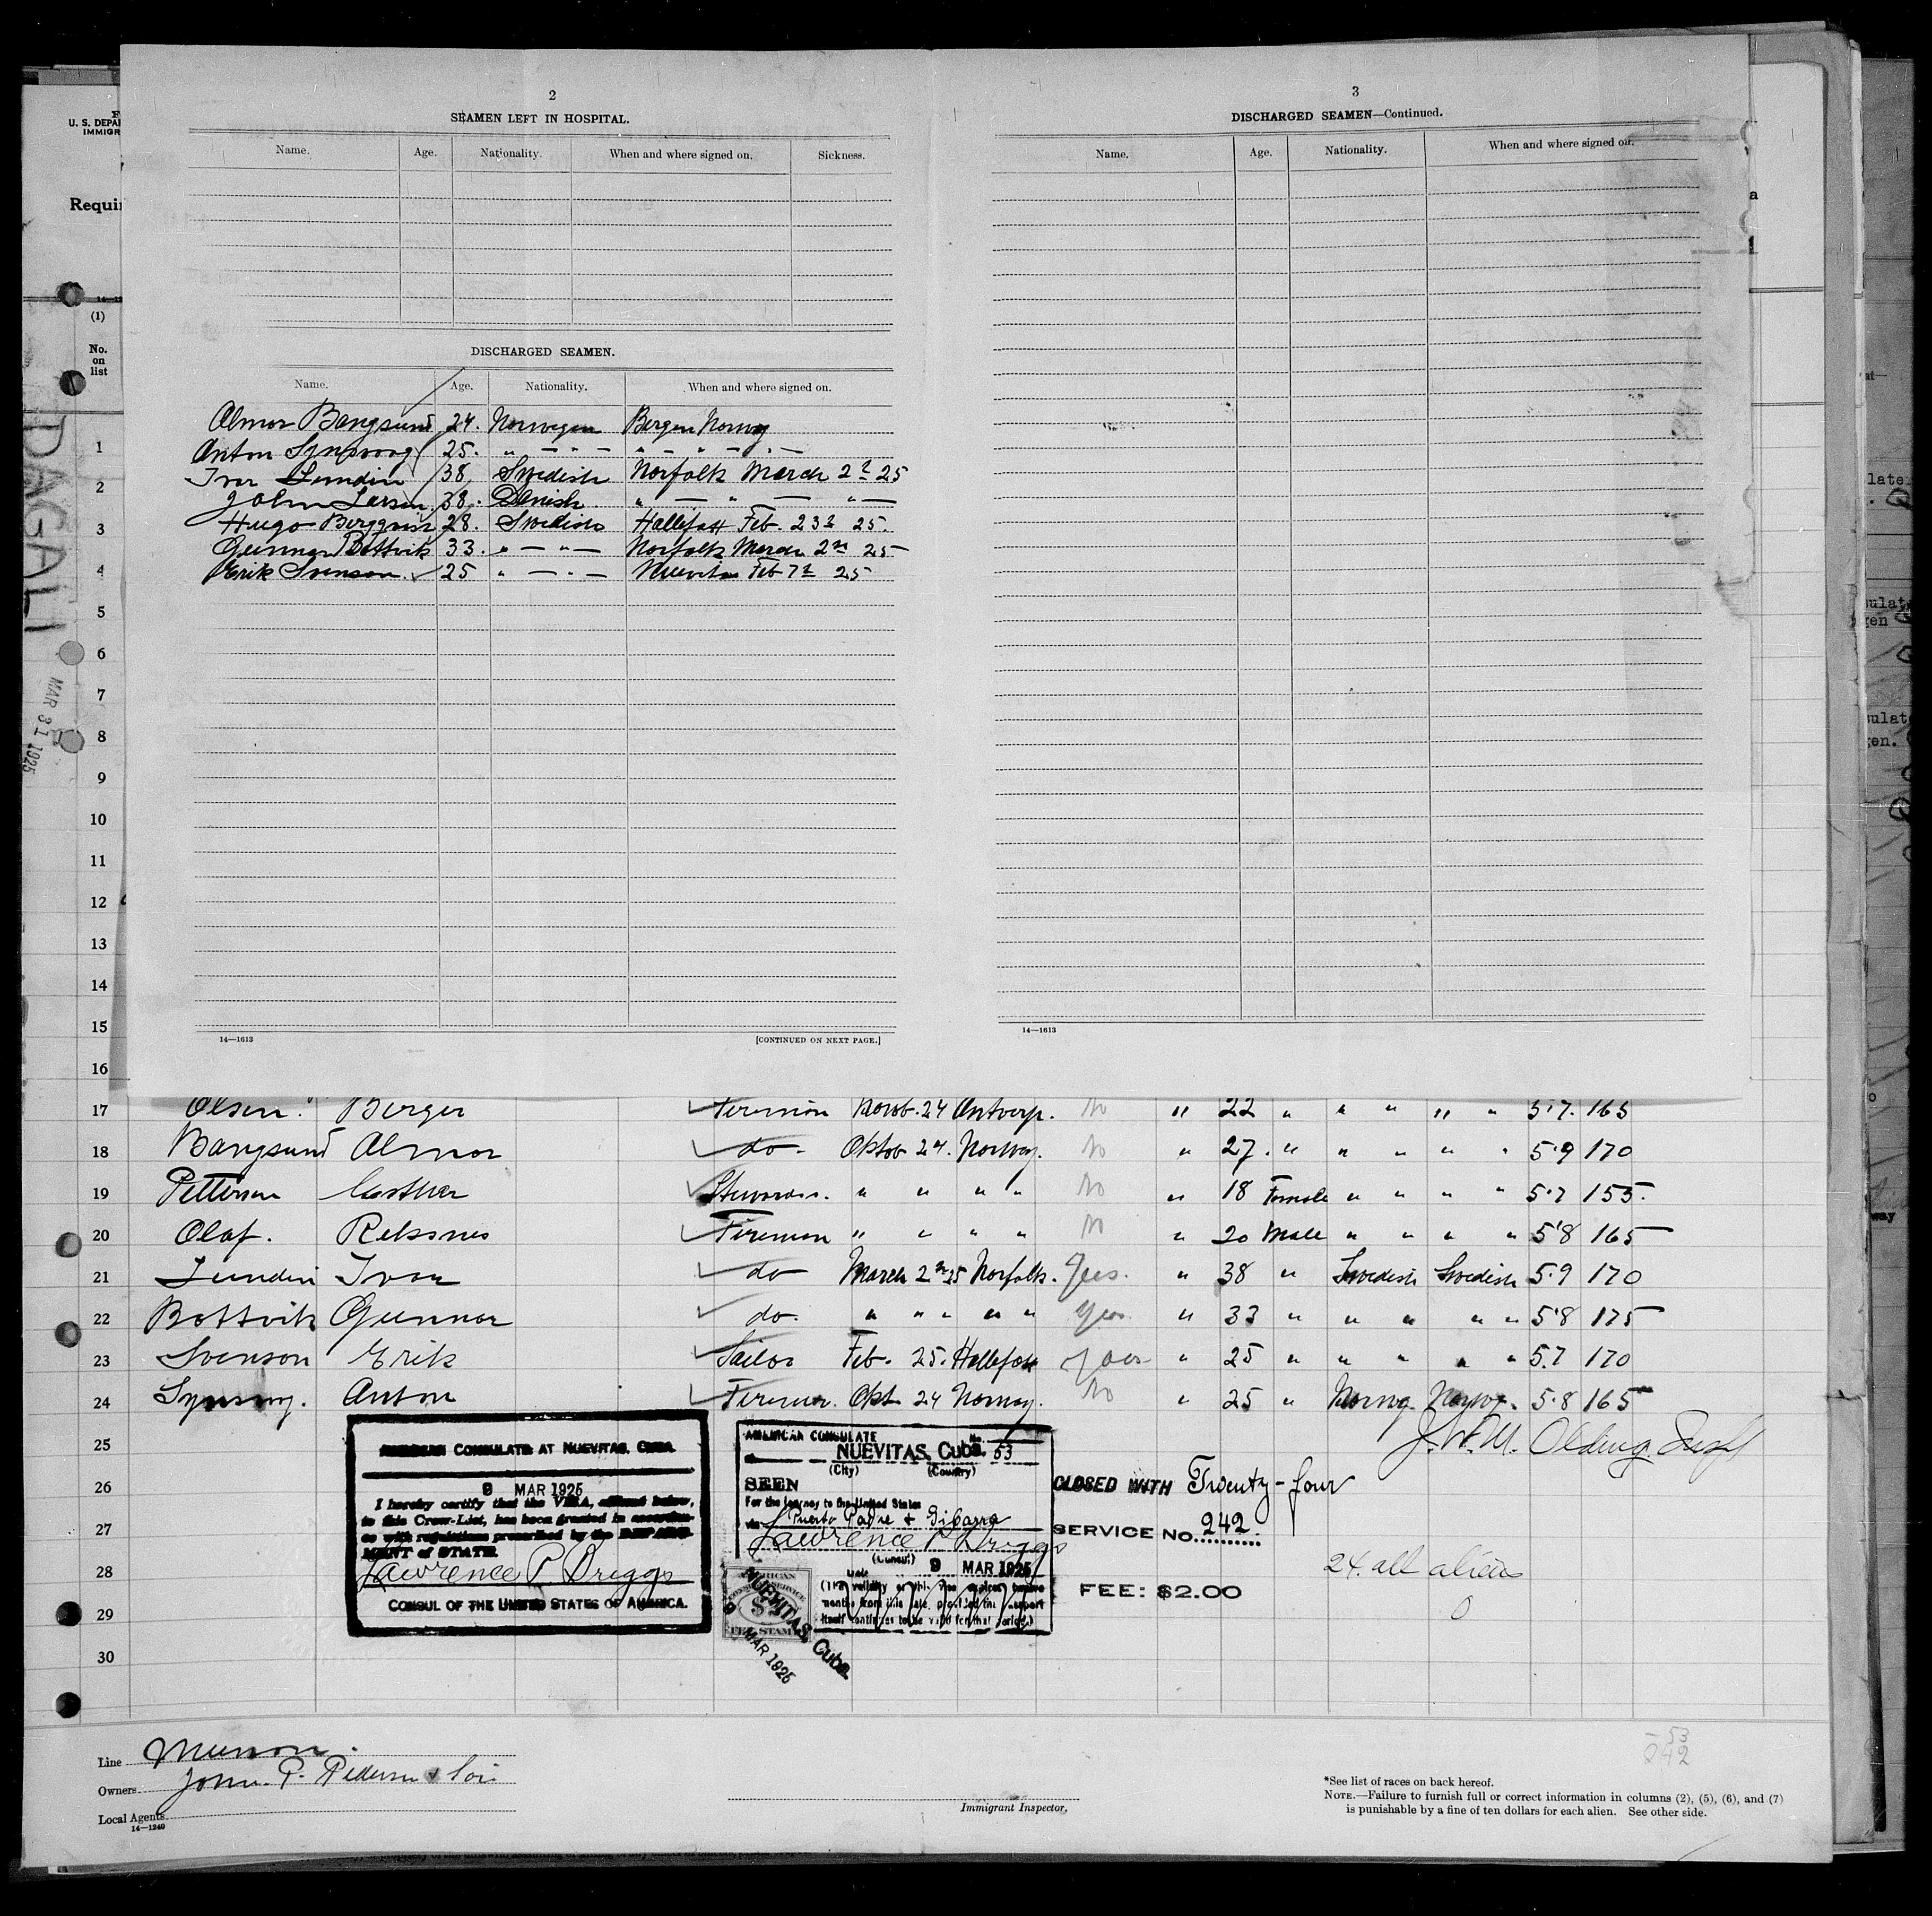 2
SEAMEN LEFT IN HOSPITAL.
Name. Age. Nationality. When and where signed on. Sickness.
DISCHARGED SEAMEN.
Name. Age. Nationality. When and where signed on.
Almor Bangsund 24. Norwegen Bergen Norway
Anton 25. " — " — " — " — " —
Ivar Lundin 38, Swedish Norfolk March 2 25
John Larsen 38. Danish " — " — " —
Hugo Bergqvist 28. Swedish Hallefax Feb. 23 25.
Gunnar Bottvik 33. " — " — Norfolk March 2n 25
Erik Svenson. 25 " — " — Nuevitas Feb 7 25
14—1613 [CONTINUED ON NEXT PAGE.]
3
DISCHARGED SEAMEN—Continued.
Name. Age. Nationality. When and where signed on.
14—1613
U. S. DEPA
IMMIGR
Requi
(1)
No.
on
list
DAGALI
MAR 31 1925
1
2
3
4
5
6
7
8
9
10
11
12
13
14
15
16
17 Olsen. Berger Firemen Novb. 24 Antverp. No " 22 " " " " " 5.7. 165
18 Bangsund Almor do - Oktob 24. Norway. No " 27. " " " " " 5.9 170
19 Petterson Esther Stewardes. " " " " No " 18 Female " " " " 5.7 155.
20 Olaf. Reksnes Firemen " " " " No " 20 Male " " " " 5'8 165
21 Lundin Ivar do March 2n 25 Norfolk. Yes. " 38 " Swedish Swedish 5.9 170
22 Bottvik Gunnar do. " " " " Yes " 33 " " " " " 5'8 175
23 Svenson Erik Sailor Feb. 25. Hallefax Yes " 25 " " " " " 5.7 170
24 Anton Firemen. Okt 24 Norway. No " 25 " Norwg. Norwg. 5.8 165
25
26
27
28
29
30
J. W. M. Olding
AMERICAN CONSULATE AT NUEVITAS, CUBA.
9 MAR 1925
I hereby certify that the VISA, affixed below,
to this Crew-List, has been granted in accordan-
ce with regulations prescribed by the DEPART-
MENT of STATE.
Lawrence P Briggs
CONSUL OF THE UNITED STATES OF AMERICA.
AMERICAN CONSULATE
NUEVITAS, Cuba. No. 53
(City) (Country)
SEEN
For the journey to the United States
via Puerto Padre & Gibara
Lawrence P Briggs
(Consul)
Date 9 MAR 1925
NUEVITAS, Cuba.
9 MAR 1925
FEE STAMP
CLOSED WITH Twenty-four
SERVICE No. 242.
FEE: $2.00
24. all aliens
0
53
242
Line Munson.
Owners John. P. Pedersen & Son
Local Agents
14—1240
Immigrant Inspector.
*See list of races on back hereof.
NOTE.—Failure to furnish full or correct information in columns (2), (5), (6), and (7)
is punishable by a fine of ten dollars for each alien. See other side.